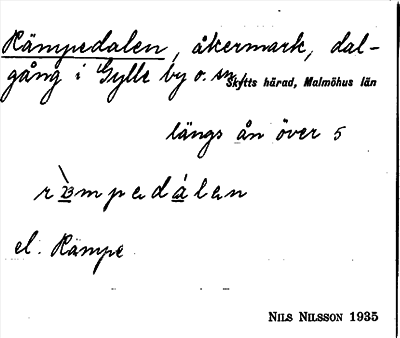 Rämpedalen, åkermark, dal-
gång i Gylle by o. sn,
Skytts härad, Malmöhus län
längs ån över 5
el. Rämpe
NILS NILSSON 1935